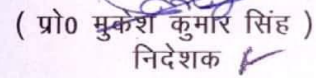 ( प्रो0 मुकेश कुमार सिंह )
निदेशक